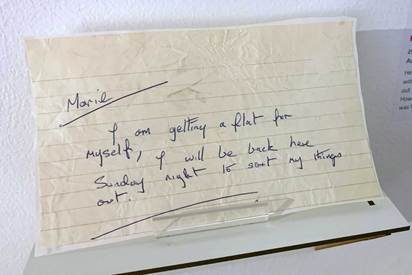 Marie
I am getting a flat for
myself, I will be back here
Sunday night to sort my things
out.